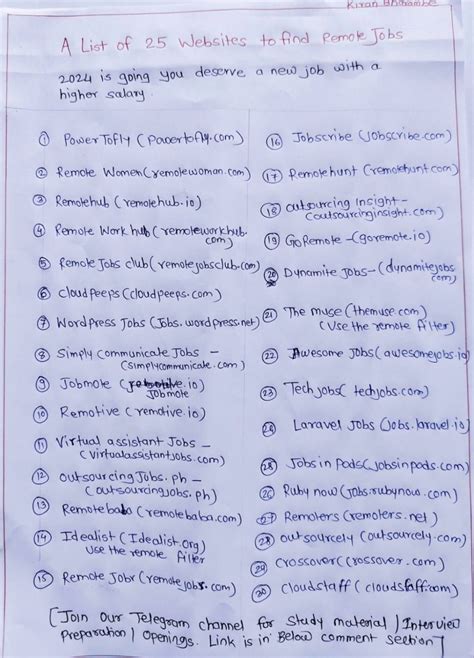 Kiran Bhorambe
A List of 25 Websites to find Remote Jobs
2024 is going you deserve a new job with a
higher salary.
① PowerToFly (powertofly.com)
② Remote Women (remotewoman.com)
③ Remotehub (remotehub.io)
④ Remote Work hub (remoteworkhub.
com)
⑤ Remote Jobs club (remotejobsclub.com)
⑥ cloudpeeps (cloudpeeps.com)
⑦ WordPress Jobs (Jobs.wordpress.net)
⑧ Simply communicate Jobs –
(simplycommunicate.com)
⑨ Jobmote (.io)
Jobmote
⑩ Remotive (remotive.io)
⑪ Virtual assistant Jobs –
(virtualassistantjobs.com)
⑫ outsourcing Jobs.ph –
(outsourcingjobs.ph)
⑬ Remotebaba (remotebaba.com)
⑭ Idealist (Idealist.org)
Use the remote filter
⑮ Remote Jobr (remotejobr.com)
⑯ Jobscribe (Jobscribe.com)
⑰ Remotehunt (remotehunt.com)
⑱ outsourcing Insight –
(outsourcinginsight.com)
⑲ GoRemote – (goremote.io)
⑳ Dynamite Jobs – (dynamitejobs
com)
㉑ The muse (themuse.com)
(Use the remote filter)
㉒ Awesome Jobs (awesomejobs.io)
㉓ Tech jobs (techjobs.com)
㉔ Laravel Jobs (Jobs.laravel.io)
㉕ Jobs in Pods (Jobsinpods.com)
㉖ Ruby now (Jobs.rubynow.com)
㉗ Remoters (remoters.net)
㉘ outsourcely (outsourcely.com)
㉙ crossover (crossover.com)
㉚ cloudstaff (cloudstaff.com)
[Join our Telegram channel for study material | Interview
Preparation | Openings. Link is in Below comment section]